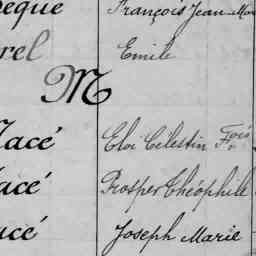 François Jean
rel Emile
M
Macé Eloi Célestin Fois
Macé Prosper Théophile
Macé Joseph Marie